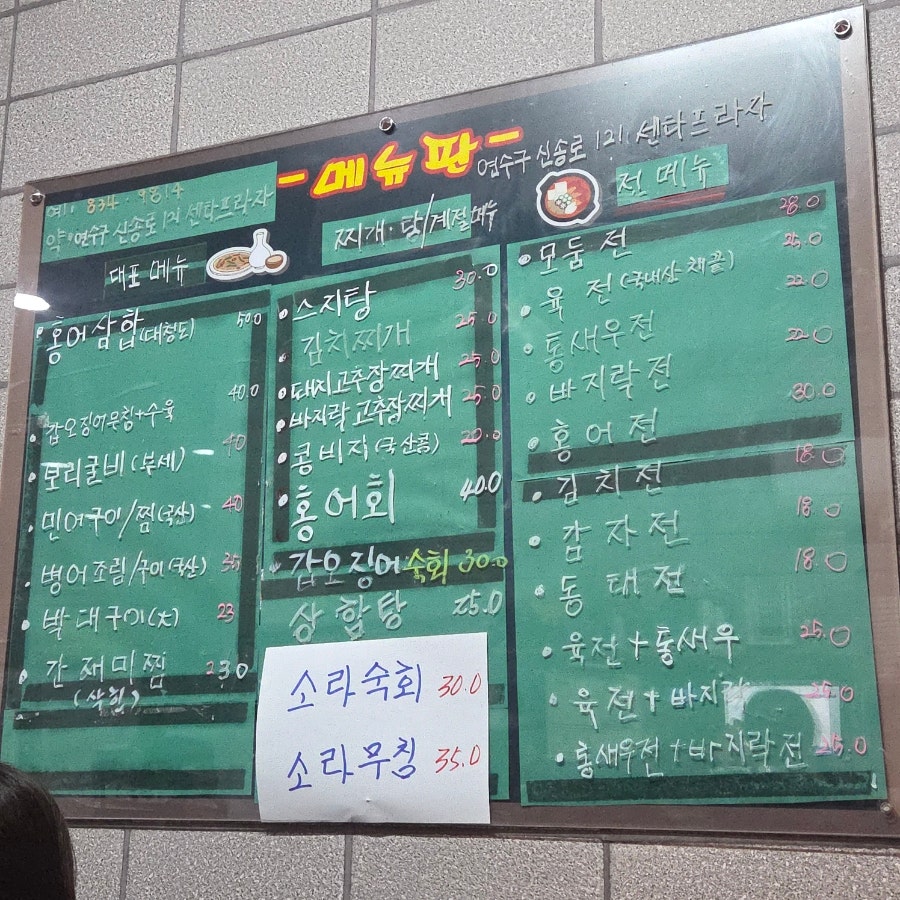 - 메뉴판 -
연수구 신송로 121 센타프라자
834 · 9814
약·연수구 신송로 121 센타프라자
대표 메뉴
· 홍어삼합 (대청도) 50.0
· 갑오징어무침+수육 40.0
· 보리굴비 (부세) 40
· 민어구이/찜 (국산) 40
· 병어조림/구이 (국산) 35
· 박대구이 (大) 23
· 간재미찜 230
(삭힌)
찌개·탕/계절메뉴
· 스지탕 30.0
김치찌개 25.0
· 돼지고추장찌개 25.0
· 바지락고추장찌개 25.0
· 콩비지 (국산콩) 20.0
· 홍어회 40.0
· 갑오징어숙회 30.0
상합탕 25.0
소라숙회 30.0
소라무침 35.0
전 메뉴
· 모둠전 28.0
· 육전 (국내산 채끝) 25.0
· 통새우전 22.0
· 바지락전 22.0
· 홍어전 30.0
· 김치전 18.0
· 감자전 18.0
· 동태전 18.0
· 육전+통새우 25.0
· 육전+바지락 25.0
· 통새우전+바지락전 25.0